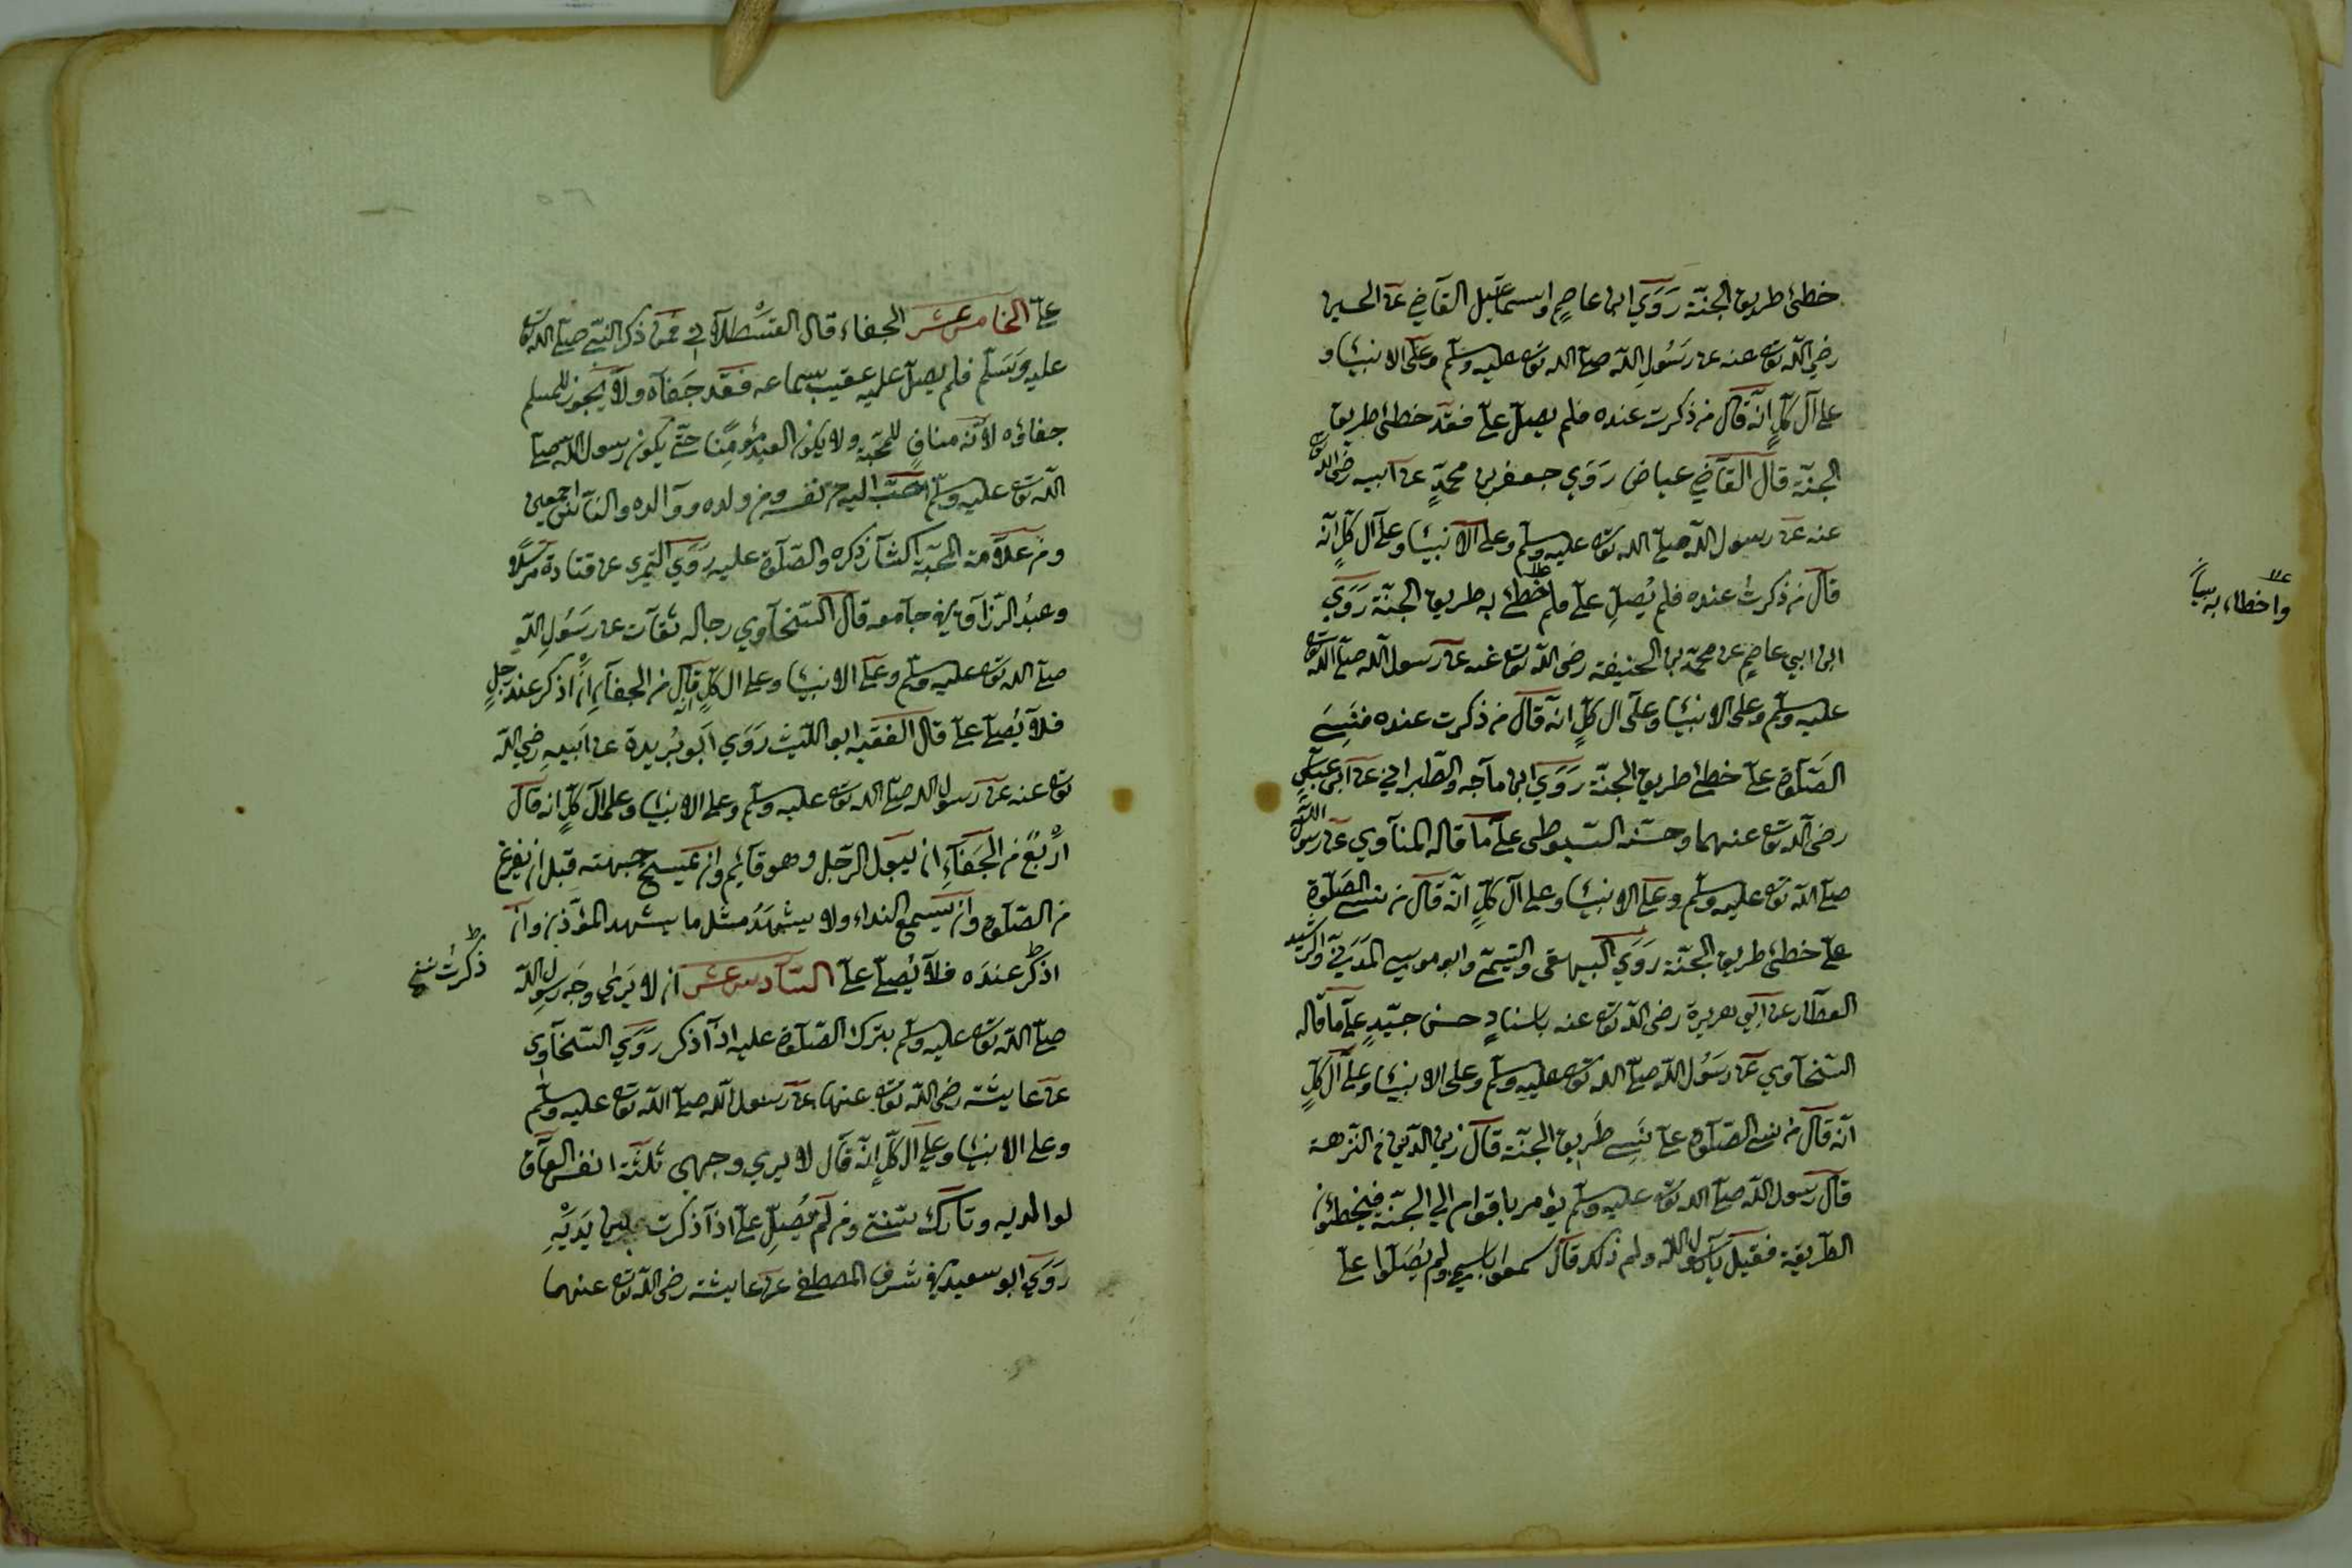 خطئ طريق الجنّة رَوَي ابن عاصمٍ واسماعيل القاضي عن الحسين
رضي الله تع عنه عن رَسُولِ الله صلّى الله تع عليه وسلّم وعلى الانبياء و
على آل كلٍّ انّه قال من ذكرت عنده فلم يصلّ عليّ فقد خطئ طريق
الجنّة قال القاضي عياض رَوَي جعفر بن محمّدٍ عن ابيه رضي الله تع
عنه عن رسول الله صلّى الله تع عليه وسلّم وعلى الانبياء وعلى آل كلٍّ انّه
قال من ذكرتُ عنده فلم يُصلِّ عليّ فلم خطئ به طريق الجنّة رَوَي
واخطاء به
ابن ابي عاصمٍ عن محمّد بن الحنيفة رضي الله تع عنه عن رسول الله صلّى الله تع
عليه وسلّم وعلى الانبياء وعلى ال كلٍّ انّه قال من ذكرت عنده فنَسِيَ
الصَلوة عليّ خطئ طريق الجنّة رَوَي ابن ماجه والطبراني عن ابن عبّاسٍ
رضي الله تع عنهما وحسّنه السّيوطي على ما قاله المناوي عن رسول الله
صلّى الله تع عليه وسلّم وعلى الانبياء وعلى آل كلٍّ انّه قال من نسي الصَلوة
عليّ خطئ طريق الجنّة رَوَي البيهقي والتيميّ وابو موسي المَدَينيّ والرشيد
العطّار عن ابي هريرة رضي الله تع عنه باسنادٍ حسن جيّدٍ على ما قاله
السّخاوي عن رسُول الله صلّى الله تع عليه وسلّم وعلى الانبياء وعلى آل كلٍّ
انّه قال من نسي الصّلوة عليّ نَسِي طريق الجنّة قال زين الدّين في النزهة
قال رسول الله صلّى الله تع عليه وسلّم يؤمر باقوام الي الجنّة فيخطئون
الطريقة فقيل يا رسول الله ولم ذلك قال سمعوا باسمي ولم يُصَلّوا عليّ
عليّ الخامس عشر الجفاء قال القَسْطلاني فمن ذكر النبّي صلّى الله تع
عليه وَسَلّم فلم يصلّ عليه عقيب سماعه فقد جَفاه ولا يجوز للمسلم
جفاؤه لانّه منافٍ للمحبّة ولا يكون العبد مؤمِنًا حتّى يكون رسول الله صلّى
الله تع عليه وسلّم احبّ اليه من نفسه ومن ولده ووالده والنّاس اجمعين
ومن علامة المحبّة اكثار ذكره والصّلوة عليه رَوَي النميري عن قتادة مرسَلًا
وعبدُ الرّزاق في جامعه قال السّخاوي رجاله ثقات عن رَسُولِ الله
صلّى الله تع عليه وسلّم وعلى الانبياء وعلى ال كلٍّ قال من الجفاءِ انْ اذكر عند رجلٍ
فلا يُصلّي عليّ قال الفقيه ابو اللّيث رَوَي ابو بُرَيدة عن ابيه رضي الله
تع عنه عن رسول الله صلّى الله تع عليه وسلّم وعلى الانبياء وعلى آل كلٍّ انه قال
اَرْبعٌ من الجَفاءِ ان يبول الرّجل وهو قائم وان يمسح جبهته قبل ان يفرغ
من الصّلوة وان يسمع النداء ولا يشهَدُ مثل ما يشهد المؤذّن وان
اذكر عندَه فلا يُصلّي عليّ السّادس عشر ان لا يَرَي وَجه رسول الله
ذكرت نسخ
صلّى الله تع عليه وسلّم بترك الصّلوة عليه اذا ذكر رَوَي السّخاوي
عن عايشة رضي الله تع عنها عن رسول الله صلّى الله تع عليه وسلّم
وعلى الانبياء وعلى ال كلٍّ انّه قال لا يري وجهي ثلثة انفس العاقّ
لوالديه وتارك سنتي ومن لم يُصلِّ عليّ اذا ذكرت بين يَدَيْهِ
رَوَي ابو سعيد في شرف المصطفى عن عايشة رضي الله تع عنهما